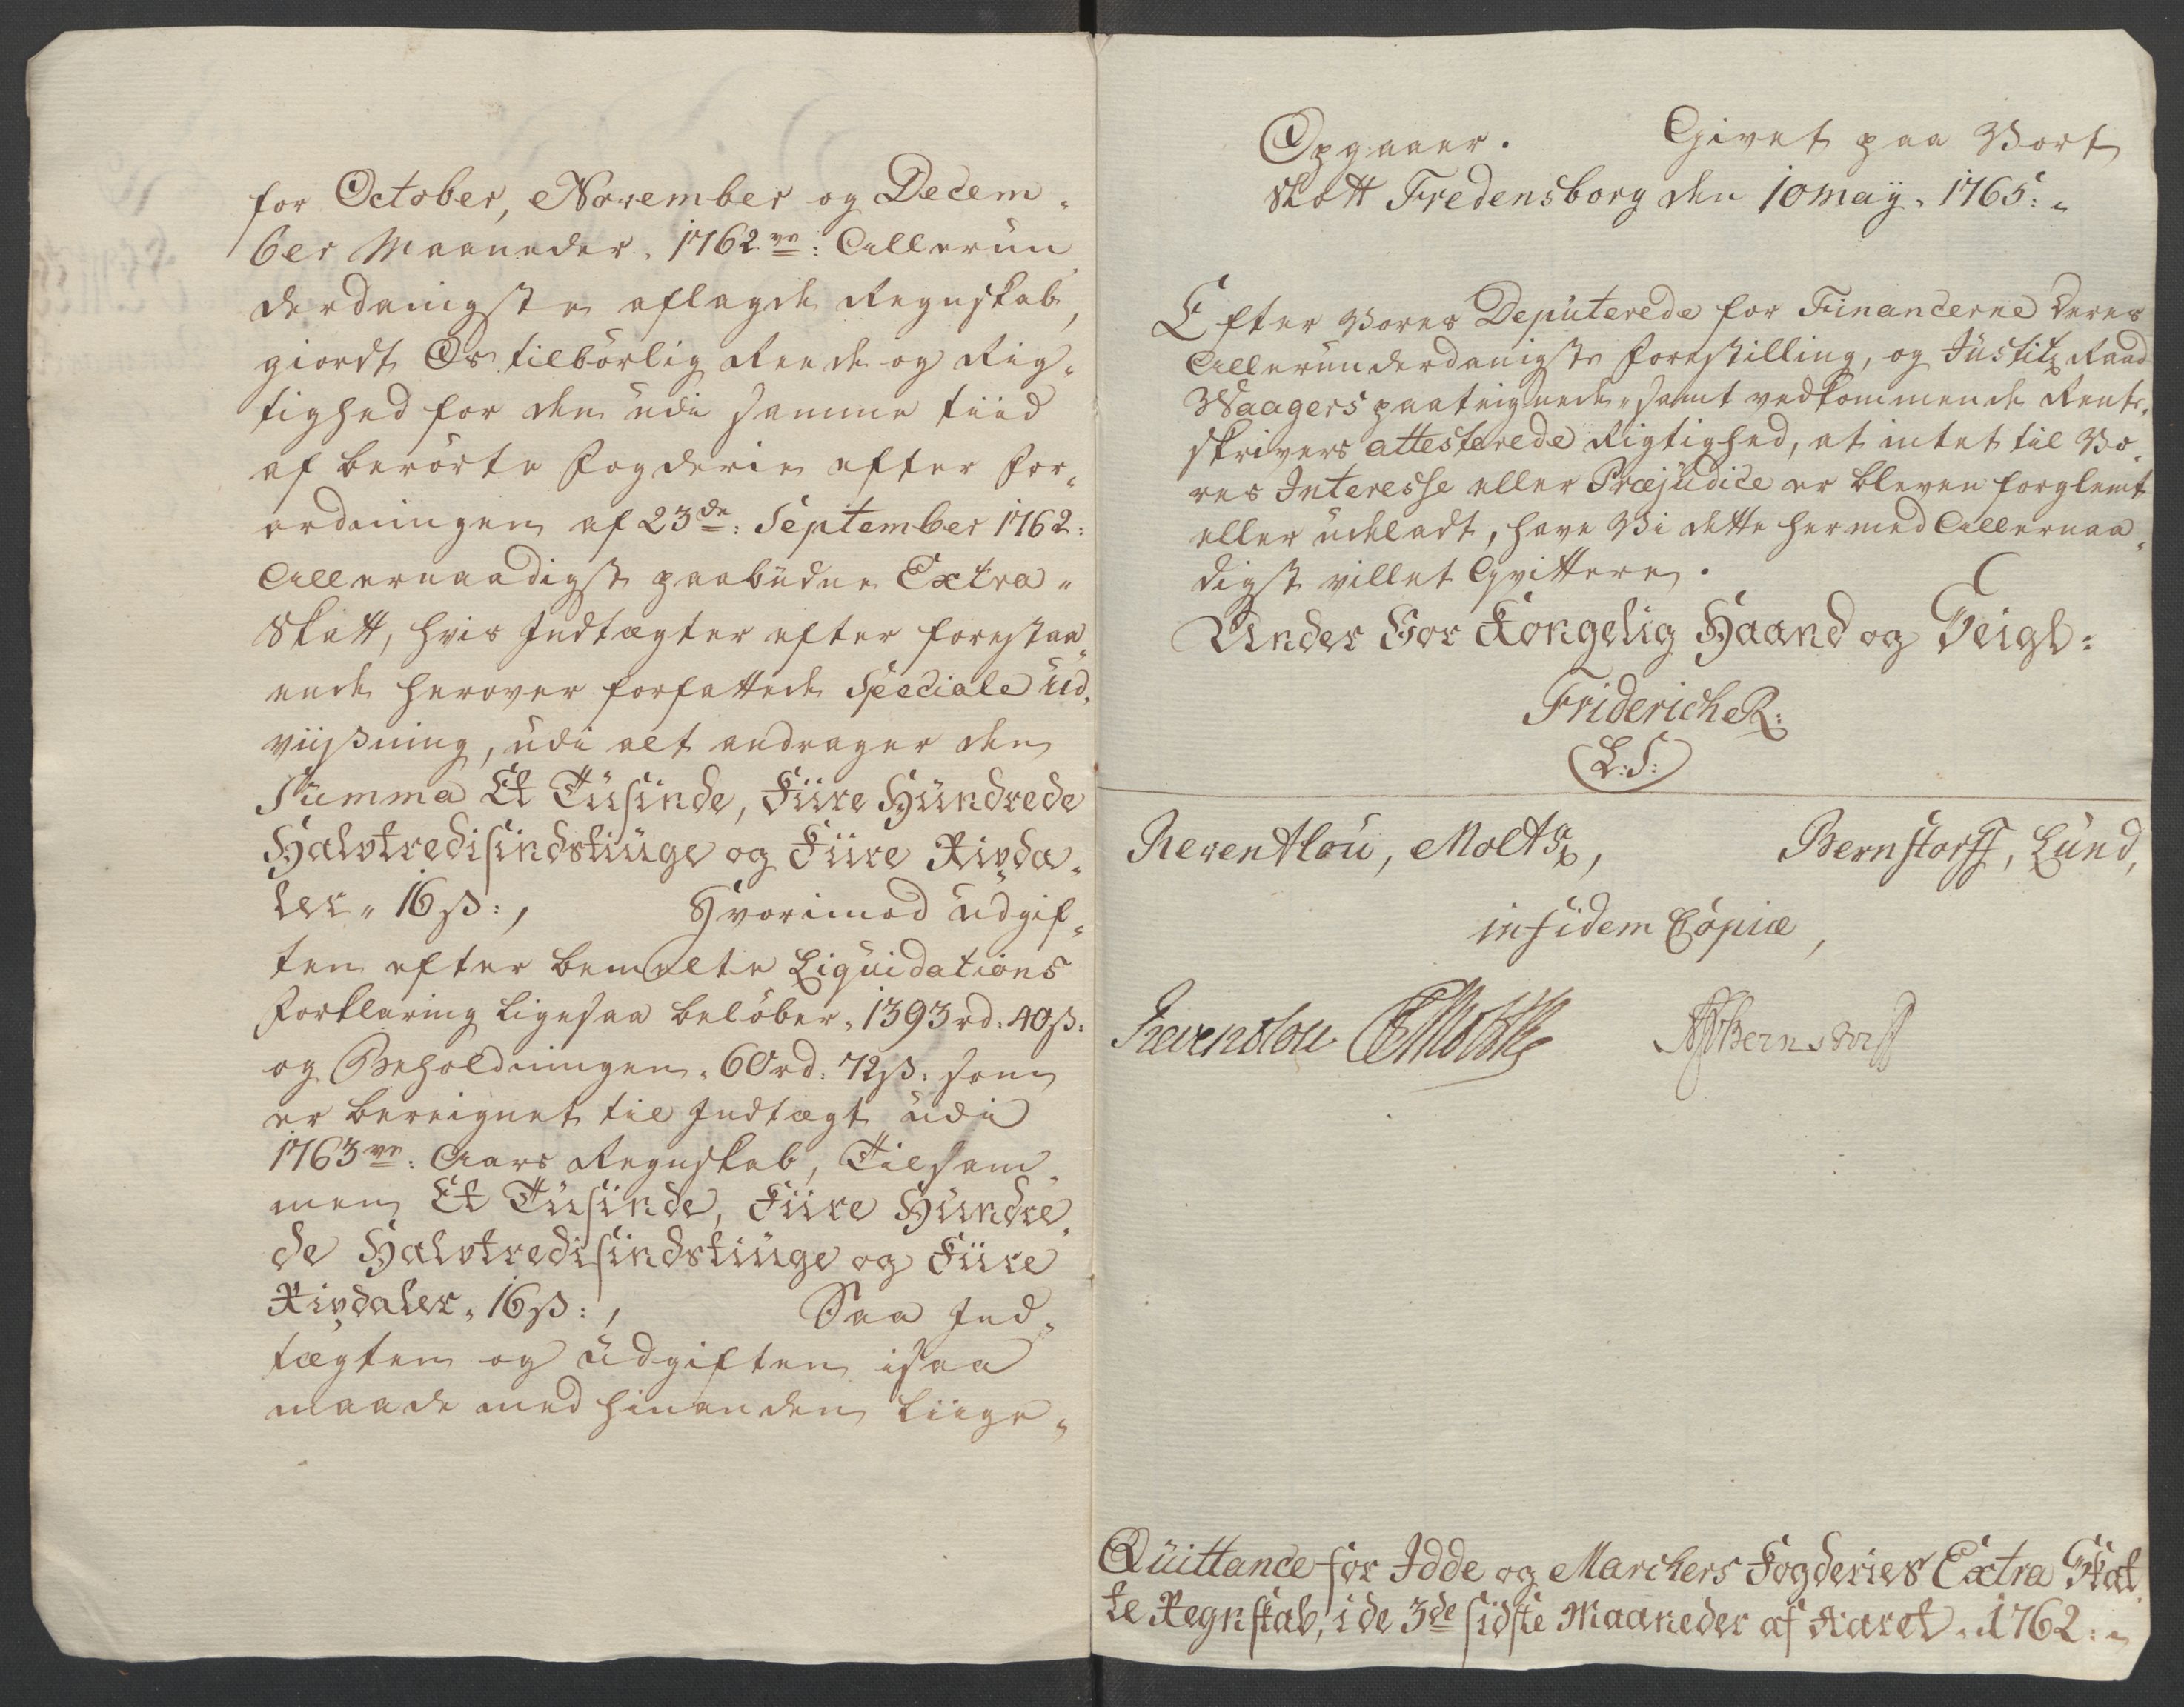 for October, November og Decem-
ber Maaneder, 1762ve: Allerun
derdanigste aflagde Regnskab,
giordt Os tilbörlig Reede og Rig-
tighed for den udi samme tiid
af berörte Fogderie efter For-
ordningen af 23de: September 1762:
Allernaadigst paabudne Extra-
Skatt, hvis Indtægter efter forestaa-
ende herover forfattede Speciale Ud-
viisning, udi alt andrager den
Summa Et Tusinde, Fiire Hundrede
Halvtredisindstiuge og Fiire Rixda-
ler, 16 s:, Hvorimod Udgif-
ten efter bemelte Liquidations
Forklaring ligesaa belöber, 1393 rd: 40 s:
og Beholdningen, 60 rd: 72 s: som
er bereignet til Indtægt udi
1763ve: Aars Regnskab, Tilsam-
men Et Tusinde, Fiire Hundre-
de Halvtredisindstiuge og Fiire
Rixdaler, 16 s:, Saa Ind-
tægten og Udgiften isaa
maade med hinanden Liige-
Opgaaer. Givet paa Vort
Slott Fredensborg den 10 may, 1765:
Efter Vores Deputerede for Financerne deres
Allerunderdanigste Forestilling, og Justitz Raad
Waagers paateignede, samt vedkommende Rente-
skrivers attesterede Rigtighed, at intet til Vo-
res Interesse eller Præjudice er bleven forglemt
eller udeladt, have Vi dette hermed Allernaa-
digst villet Qvittere.
Under Vor Kongelig Haand og Seigl:
Friderich R:
L:S:
Reventlou, Moltke, Bernstorff, Lund,
in fidem Copiæ,
Reventlou Moltke Bernstorff
Quittance for Idde og Marckers Fogderies Extra Skat-
te Regnskab, i de 3de sidste Maaneder af Aaret, 1762: